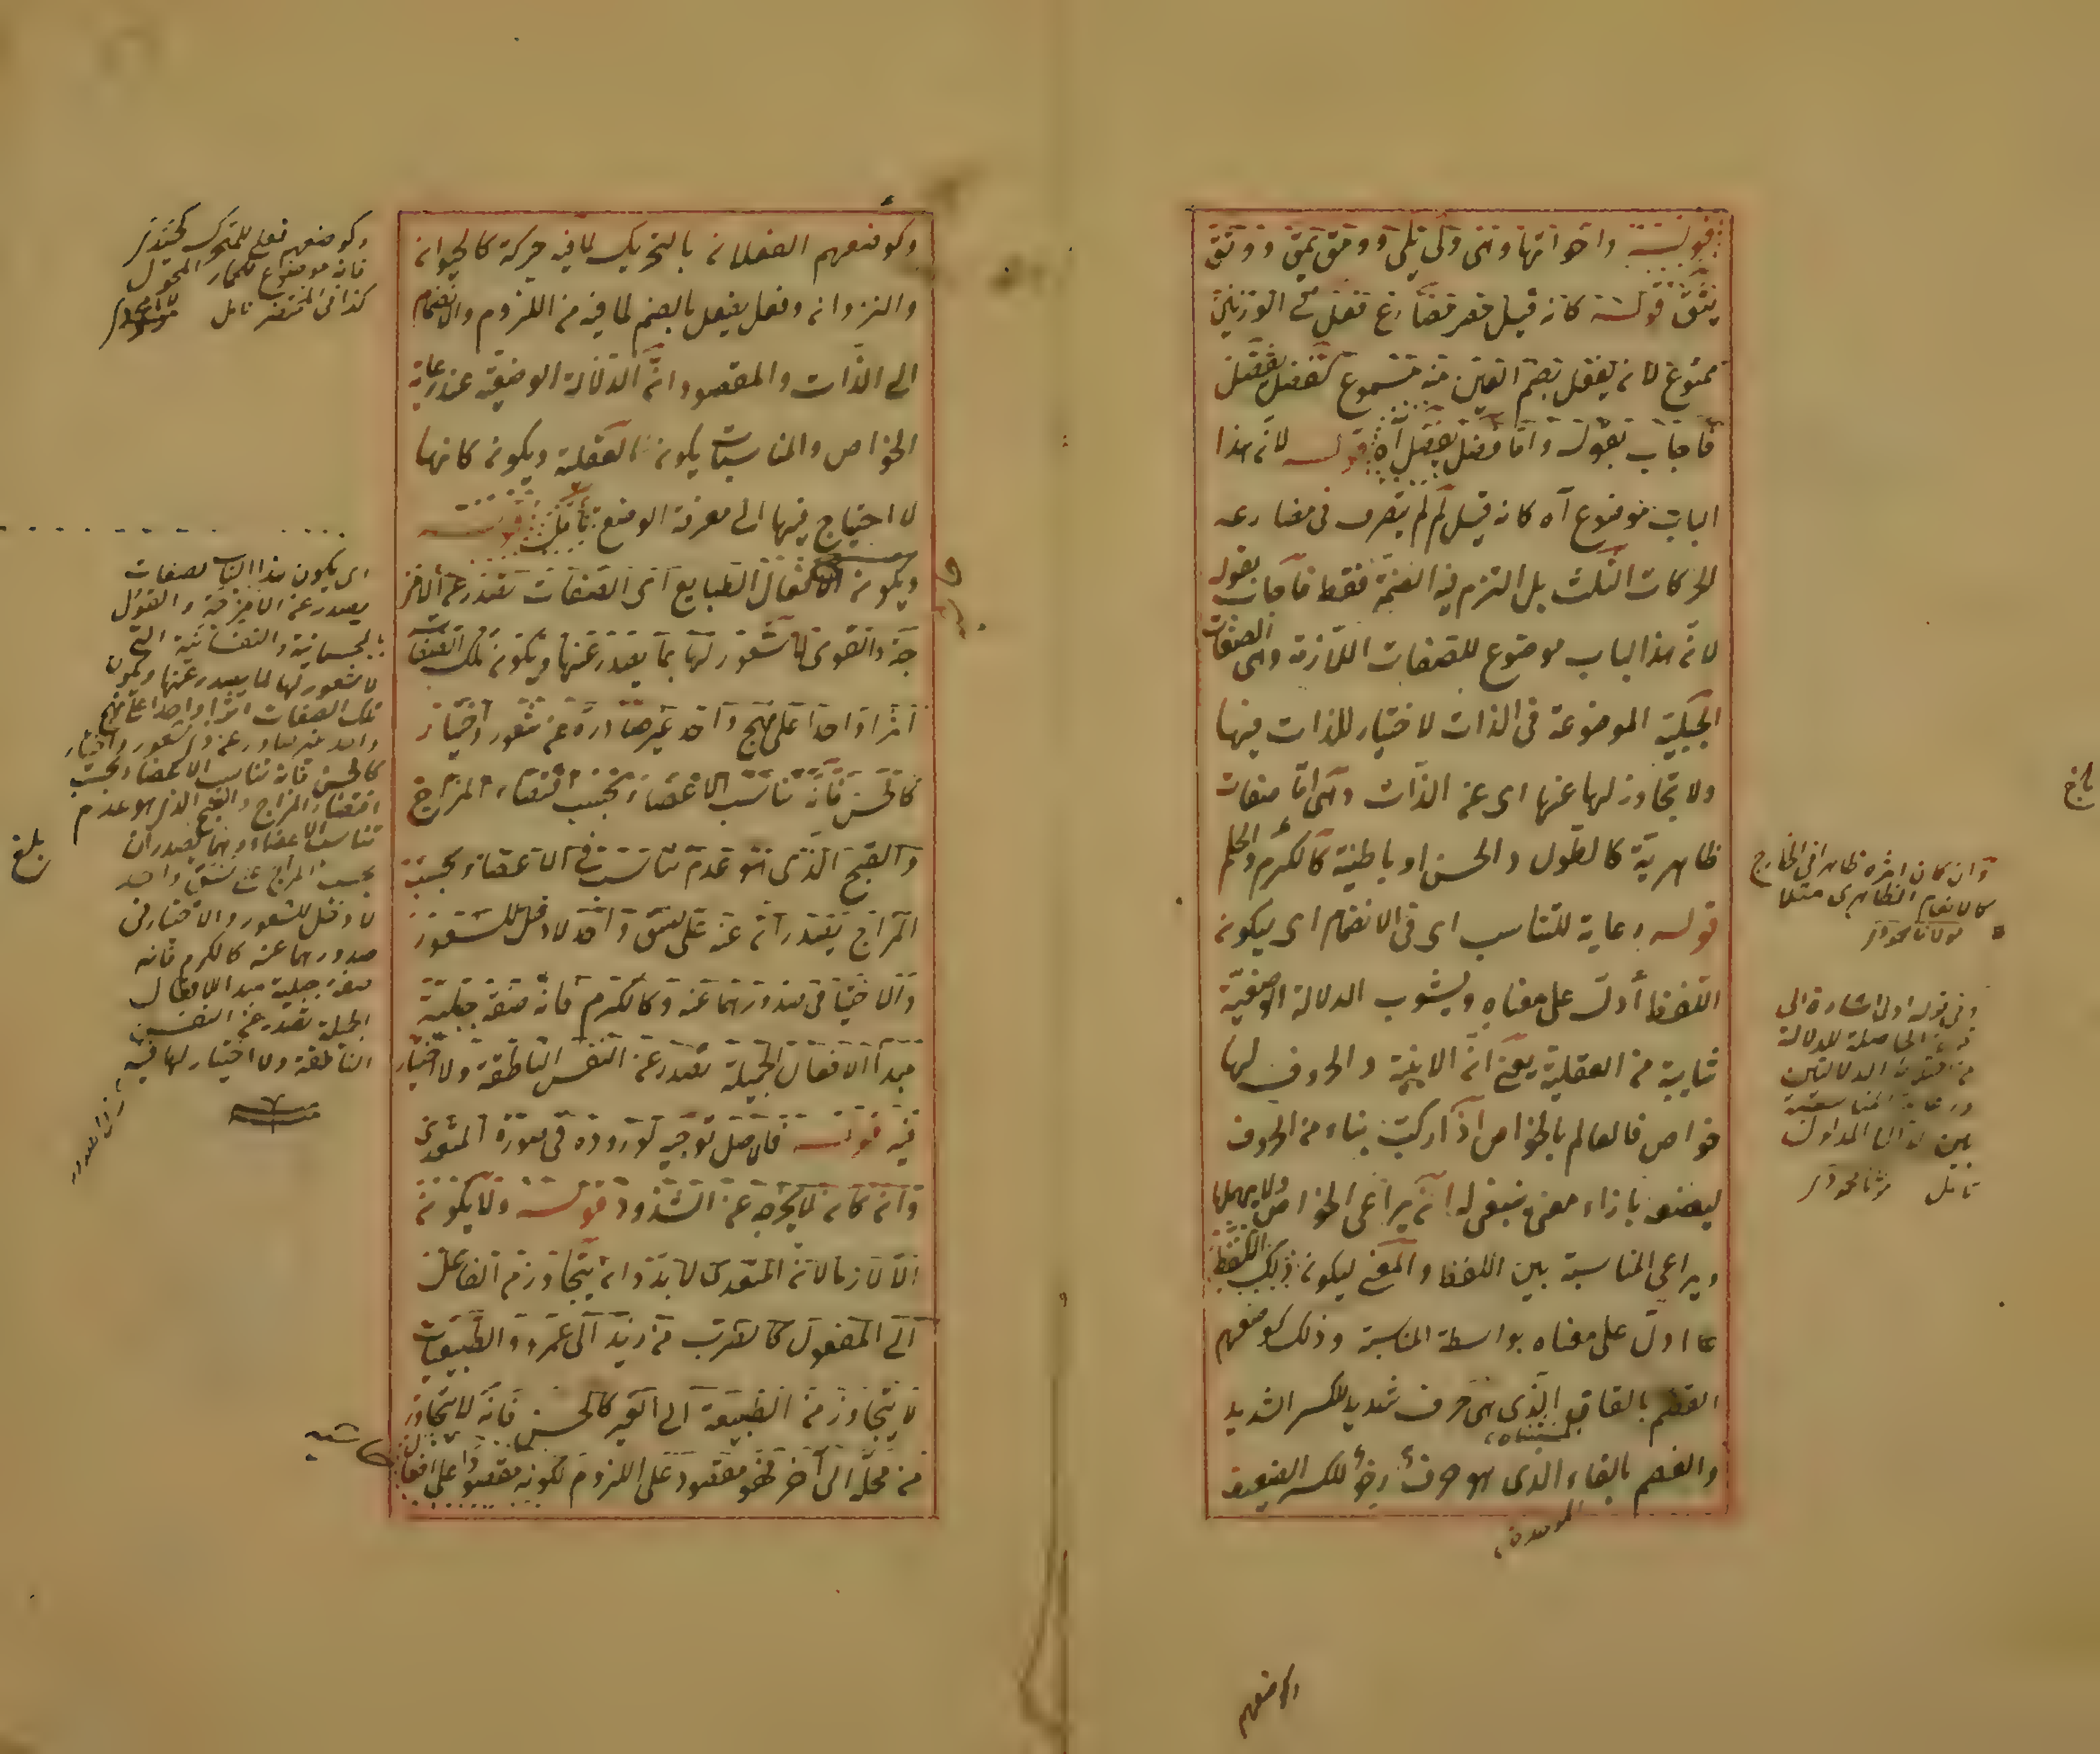 قوله واخواتها وهى ولى يلى وومق يمق ووثق
يثق قوله كانه قيل حصر مضارع فعل فى الوزنين
ممنوع لانه يفعل بضم العين منه مسموع كفضل يفضل
فاجاب بقوله واما فضل يفضل آه قوله لانّ هذا
الباب موضوع آه كانه قيل لم لم يتصرف فى مضارعه
الحركات الثلث بل التزم فيه الضمة فقط فاجاب بقوله
لانّ هذا الباب موضوع للصفات اللازمة وهى الصفات
الجبلية الموضوعة فى الذات لا اختيار للذات فيها
ولا تجاوز لها عنها اى عن الذات وهى امّا صفات
ظاهرية كالطول والحسن او باطنية كالكرم والحلم
قوله رعاية للتناسب اى فى الانضمام اى ليكون
اللفظ أدلّ على معناه ويشوب الدلالة الوضعية
شايبة من العقلية يعنى انّ الابنية والحروف لها
خواص فالعالم بالخواص اذا ركّب بناء من الحروف
ليضعه بازاء معنى ينبغى له ان يراعى الخواص ولا يهملها
ويراعى المناسبة بين اللفظ والمعنى ليكون ذلك اللفظ
ادلّ على معناه بواسطة المناسبة وذلك كوضعهم
القصم بالقاف الذى هى حرف شديد للكسر الشديد
والفصم بالفاء الذى هو حرف رخو للكسر الضعيف
وان كان اثره ظاهرا فى الخارج
كالانعام الظاهرى مثلا
وفى قوله ادل اشارة الى
وكوضعهم
وكوضعهم الفعلان بالتحريك لما فيه حركة كالحيوان
والنزوان وفعل يفعل بالضم لما فيه من اللزوم والانضمام
الى الذّات والمقصود انّ الدلالة الوضعية عند رعاية
الخواص والمناسبات يكون كالعقلية ويكون كانها
لا احتياج فيها الى معرفة الوضع تأمل قوله
ويكون الافعال الطبايع اى الصفات تصدر عن الامز
جة والقوى لا شعور لها بما يصدر عنها ويكون تلك الصفات
امرا واحدا على نهج واحد غير صادرة عن شعور واختيار
كالحسن فانّه تناسب الاعضاء بحسب اقتضاء المزاج
والقبح الذى هو عدم تناسب فى الاعضاء بحسب
المزاج يصدر ان عنه على نسق واحد لا دخل للشعور
والاختيار فى صدورهما عنه وكالكرم فانّه صفة جبلية
مبدأ الافعال الجميلة تصدر عن النفس الناطقة ولا اختيار
فيه قوله فلا اصل توجيه لوروده فى صورة المتعدى
وان كان لا يخرجه عن الشذوذ قوله ولا يكون
الّا لازما لانّ المتعدى لا بدّ وان يتجاوز من الفاعل
الى المفعول كالضرب من زيد الى عمرو والطبيعيات
لا يتجاوز من الطبيعة الى الغير كالحسن فانّه لا يتجاوز
من محلّه الى آخر فهو مقصود على اللزوم لكونه مقصودا على افعال
وكوضعهم فعلى للمتحرك كحيدى
فانه موضوع للحمار المتحول
اى يكون هذا الباب لصفات
يصدر عن الامزجة والقوى
الجسمانية والنفسانية التى
لا شعور لها لما يصدر عنها ويكون
تلك الصفات امرا واحدا على نهج
واحد غير صادر عن شعور واختيار
كالحسن فانه تناسب الاعضاء بحسب
اقتضاء المزاج والقبح الذى هو عدم
تناسب الاعضاء وهما يصدران
بحسب المزاج على نسق واحد
لا دخل للشعور والاختيار فى
صدورهما عنه كالكرم فانه
صفة جبلية مبدأ للافعال
الجميلة تصدر عن النفس
الناطقة ولا اختيار لها فيه
بلغ